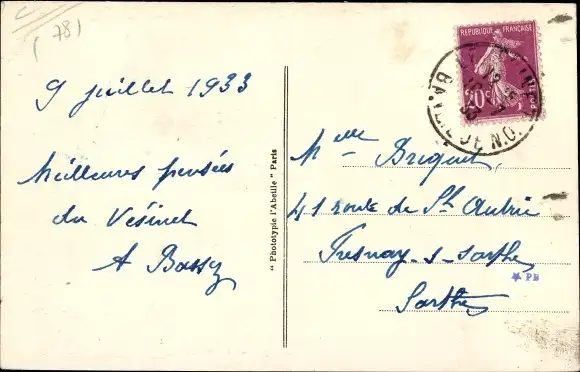 (78)
9 juillet 1933
Meilleures pensées
du Vésinet
A Bassy
" Phototypie l'Abeille " Paris
REPUBLIQUE FRANÇAISE
20c
Melle Briquet
41 route de St Aubin
Fresnay-s-Sarthe
Sarthe
PB